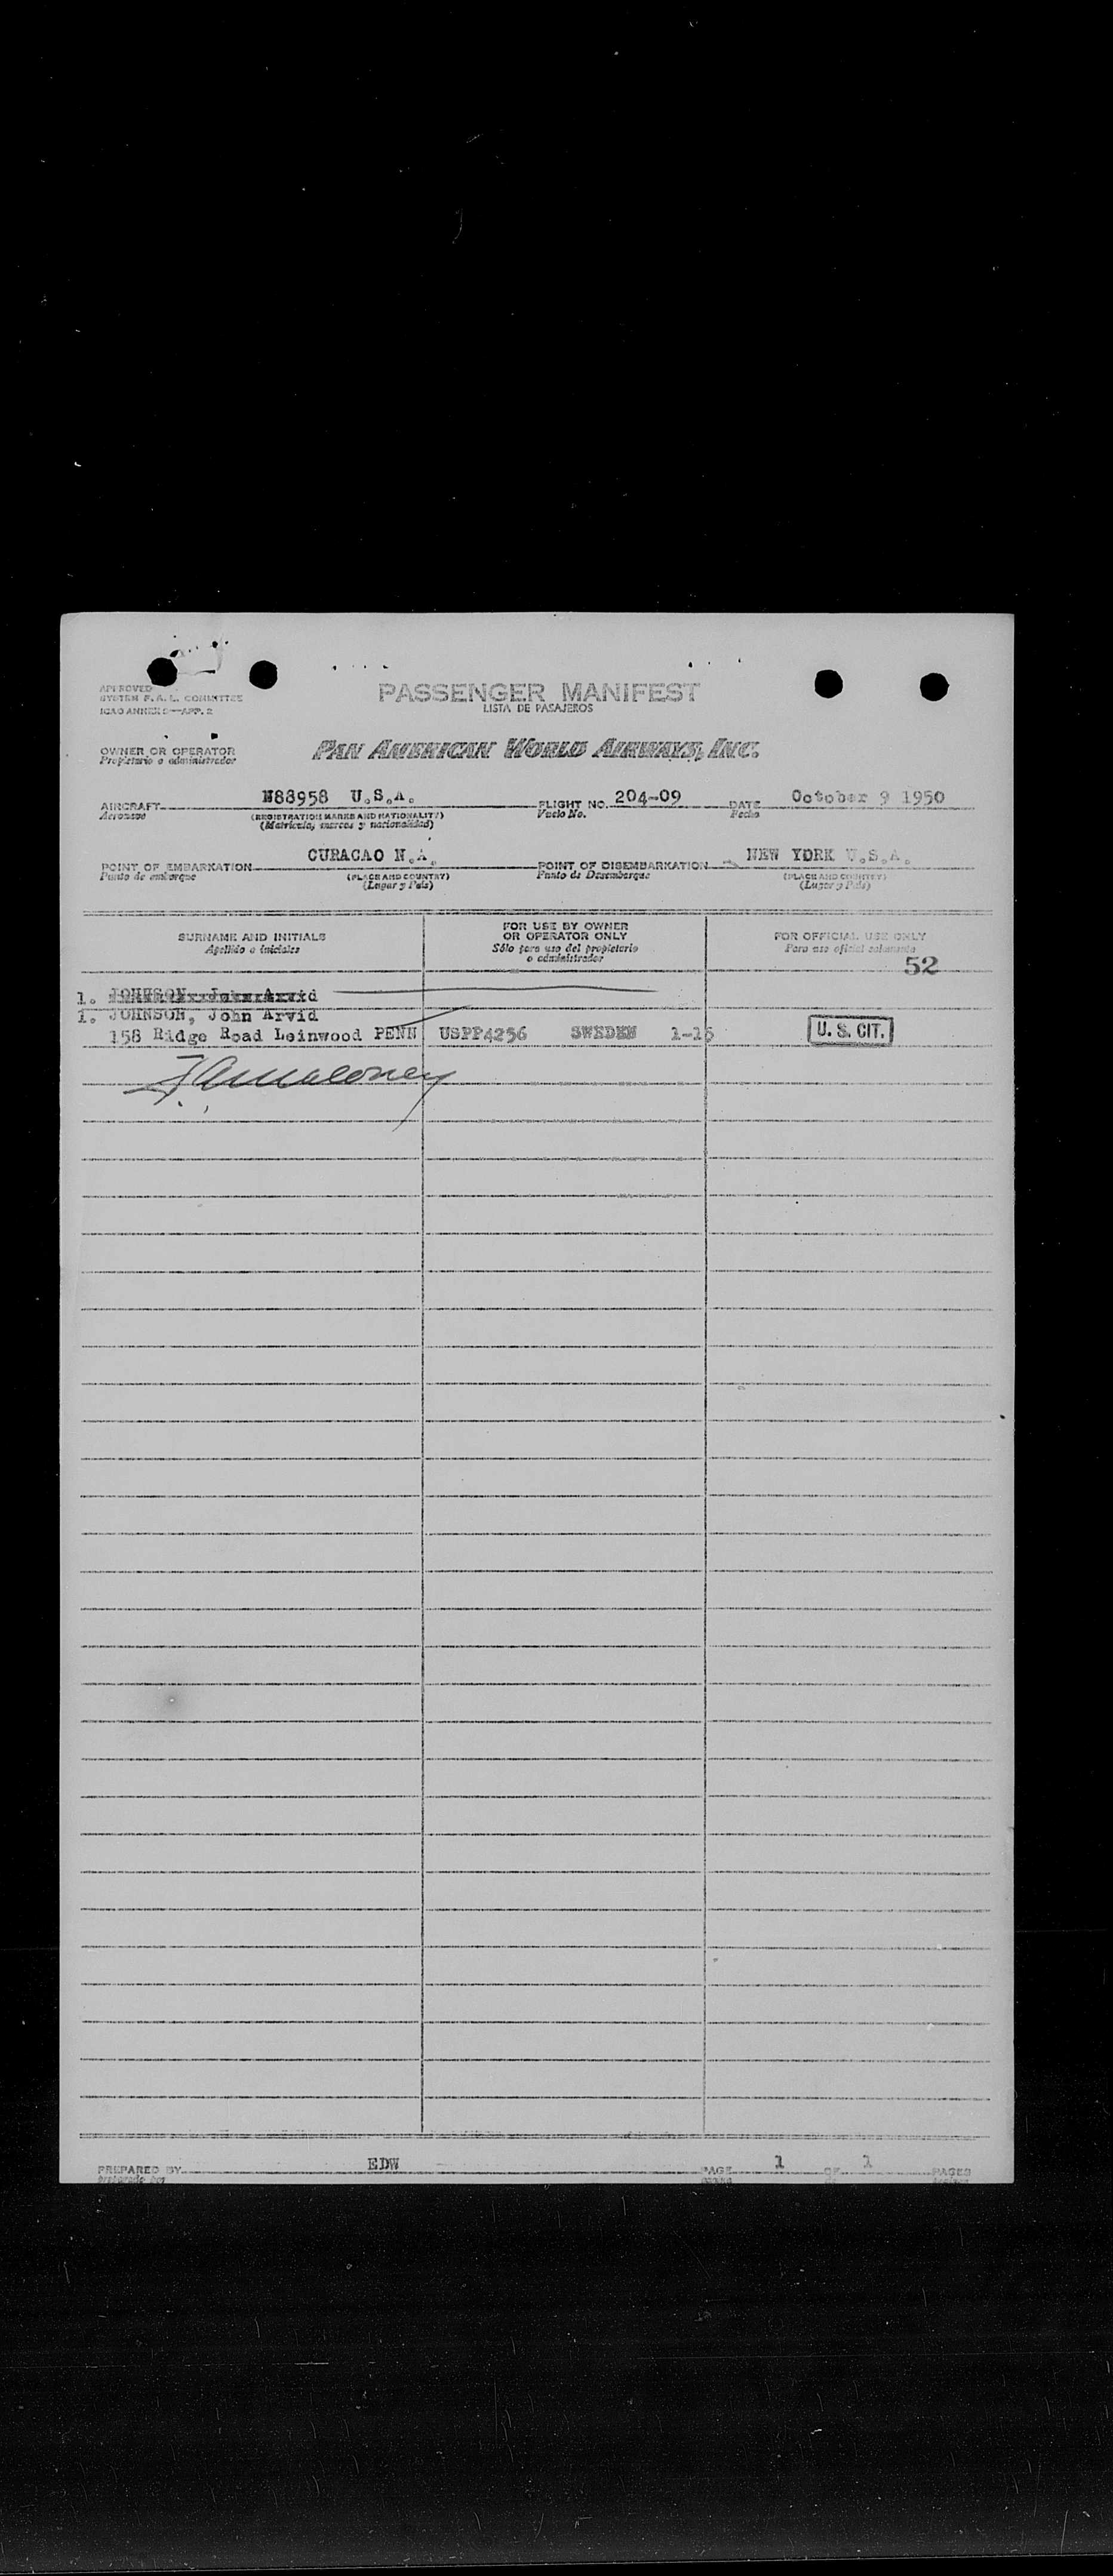 APPROVED
SYSTEM F. A. L. COMMITTEE
ICAO ANNEX 9—APP. 2
PASSENGER MANIFEST
LISTA DE PASAJEROS
OWNER OR OPERATOR
Propietario o administrador
PAN AMERICAN WORLD AIRWAYS, INC.
AIRCRAFT N88958 U.S.A. FLIGHT NO. 204-09 DATE October 9 1950
Aeronave (REGISTRATION MARKS AND NATIONALITY) Vuelo No. Fecha
(Matrícula, marcas y nacionalidad)
POINT OF EMBARKATION CURACAO N.A. POINT OF DISEMBARKATION NEW YORK U.S.A.
Punto de embarque (PLACE AND COUNTRY) Punto de Desembarque (PLACE AND COUNTRY)
(Lugar y País) (Lugar y País)
SURNAME AND INITIALS FOR USE BY OWNER OR OPERATOR ONLY FOR OFFICIAL USE ONLY
Apellido e iniciales Sólo para uso del propietario o administrador Para uso oficial solamente
52
1. JOHNSON, John Arvid
1. JOHNSON, John Arvid
158 Ridge Road Leinwood PENN USPP4256 SWEDEN 1-15 U. S. CIT.
PREPARED BY EDW PAGE 1 OF 1 PAGES